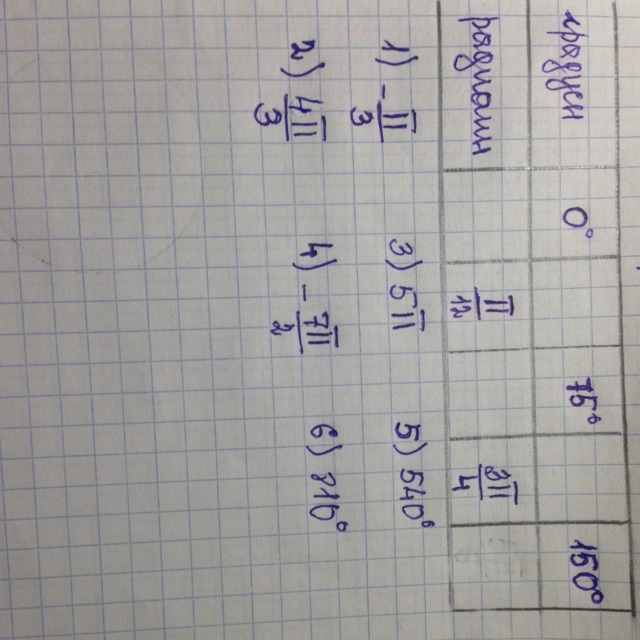 градусы 0° 75° 150°
радианы π/12 3π/4
1) -π/3 3) 5π 5) 540°
2) 4π/3 4) -7π/2 6) 810°